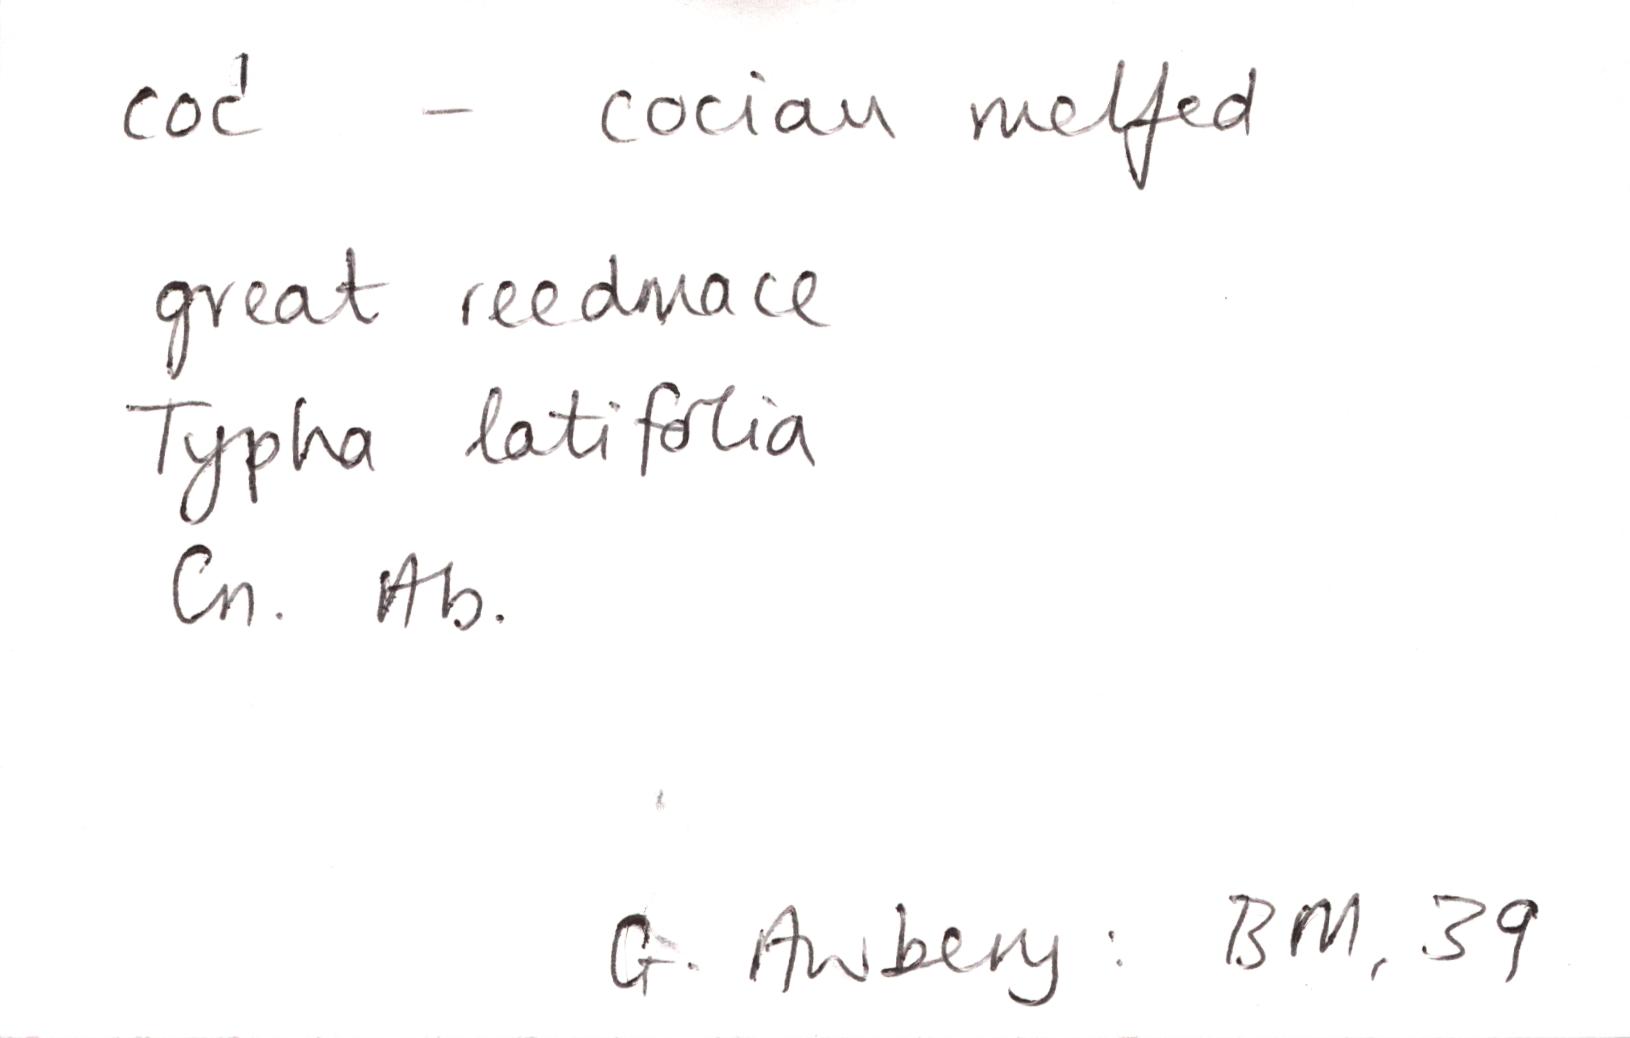 cod¹ - cociau melfed
great reedmace
Typha latifolia
Cn. Ab.
G. Awbery: BM, 39